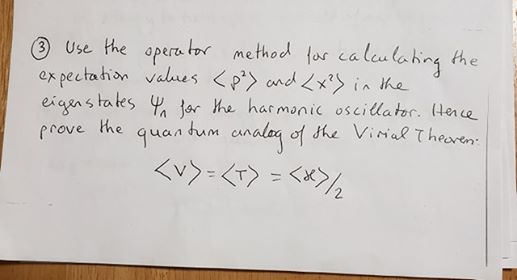 ③ Use the operator method for calculating the
expectation values <p²> and <x²> in the
eigenstates Ψₙ for the harmonic oscillator. Hence
prove the quantum analog of the Virial Theorem:
<V> = <T> = <ℋ>/2